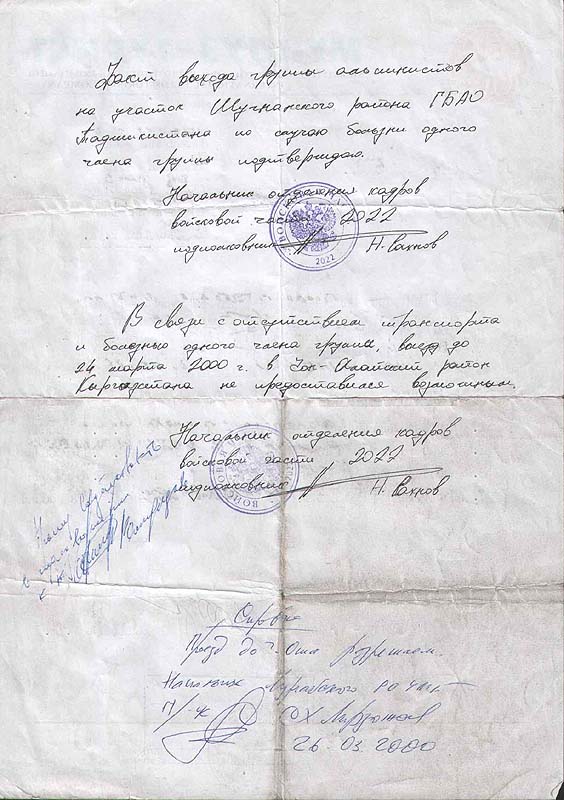 Факт выхода группы альпинистов
на участок Шугнанского района ГБАО
Таджикистана по случаю болезни одного
члена группы подтверждаю.
Начальник отделения кадров
войсковой части 2022
подполковник Н. Сахнов
2022
В связи с отсутствием транспорта
и болезнью одного члена группы, выезд до
24 марта 2000 г. в Чон-Алайский район
Кыргызстана не предоставился возможным.
Начальник отделения кадров
войсковой части 2022
подполковник Н. Сахнов
ВОЙСКОВАЯ
Справка
Проезд до г. Оша разрешаем.
Начальник
п/п-к
26.03.2000